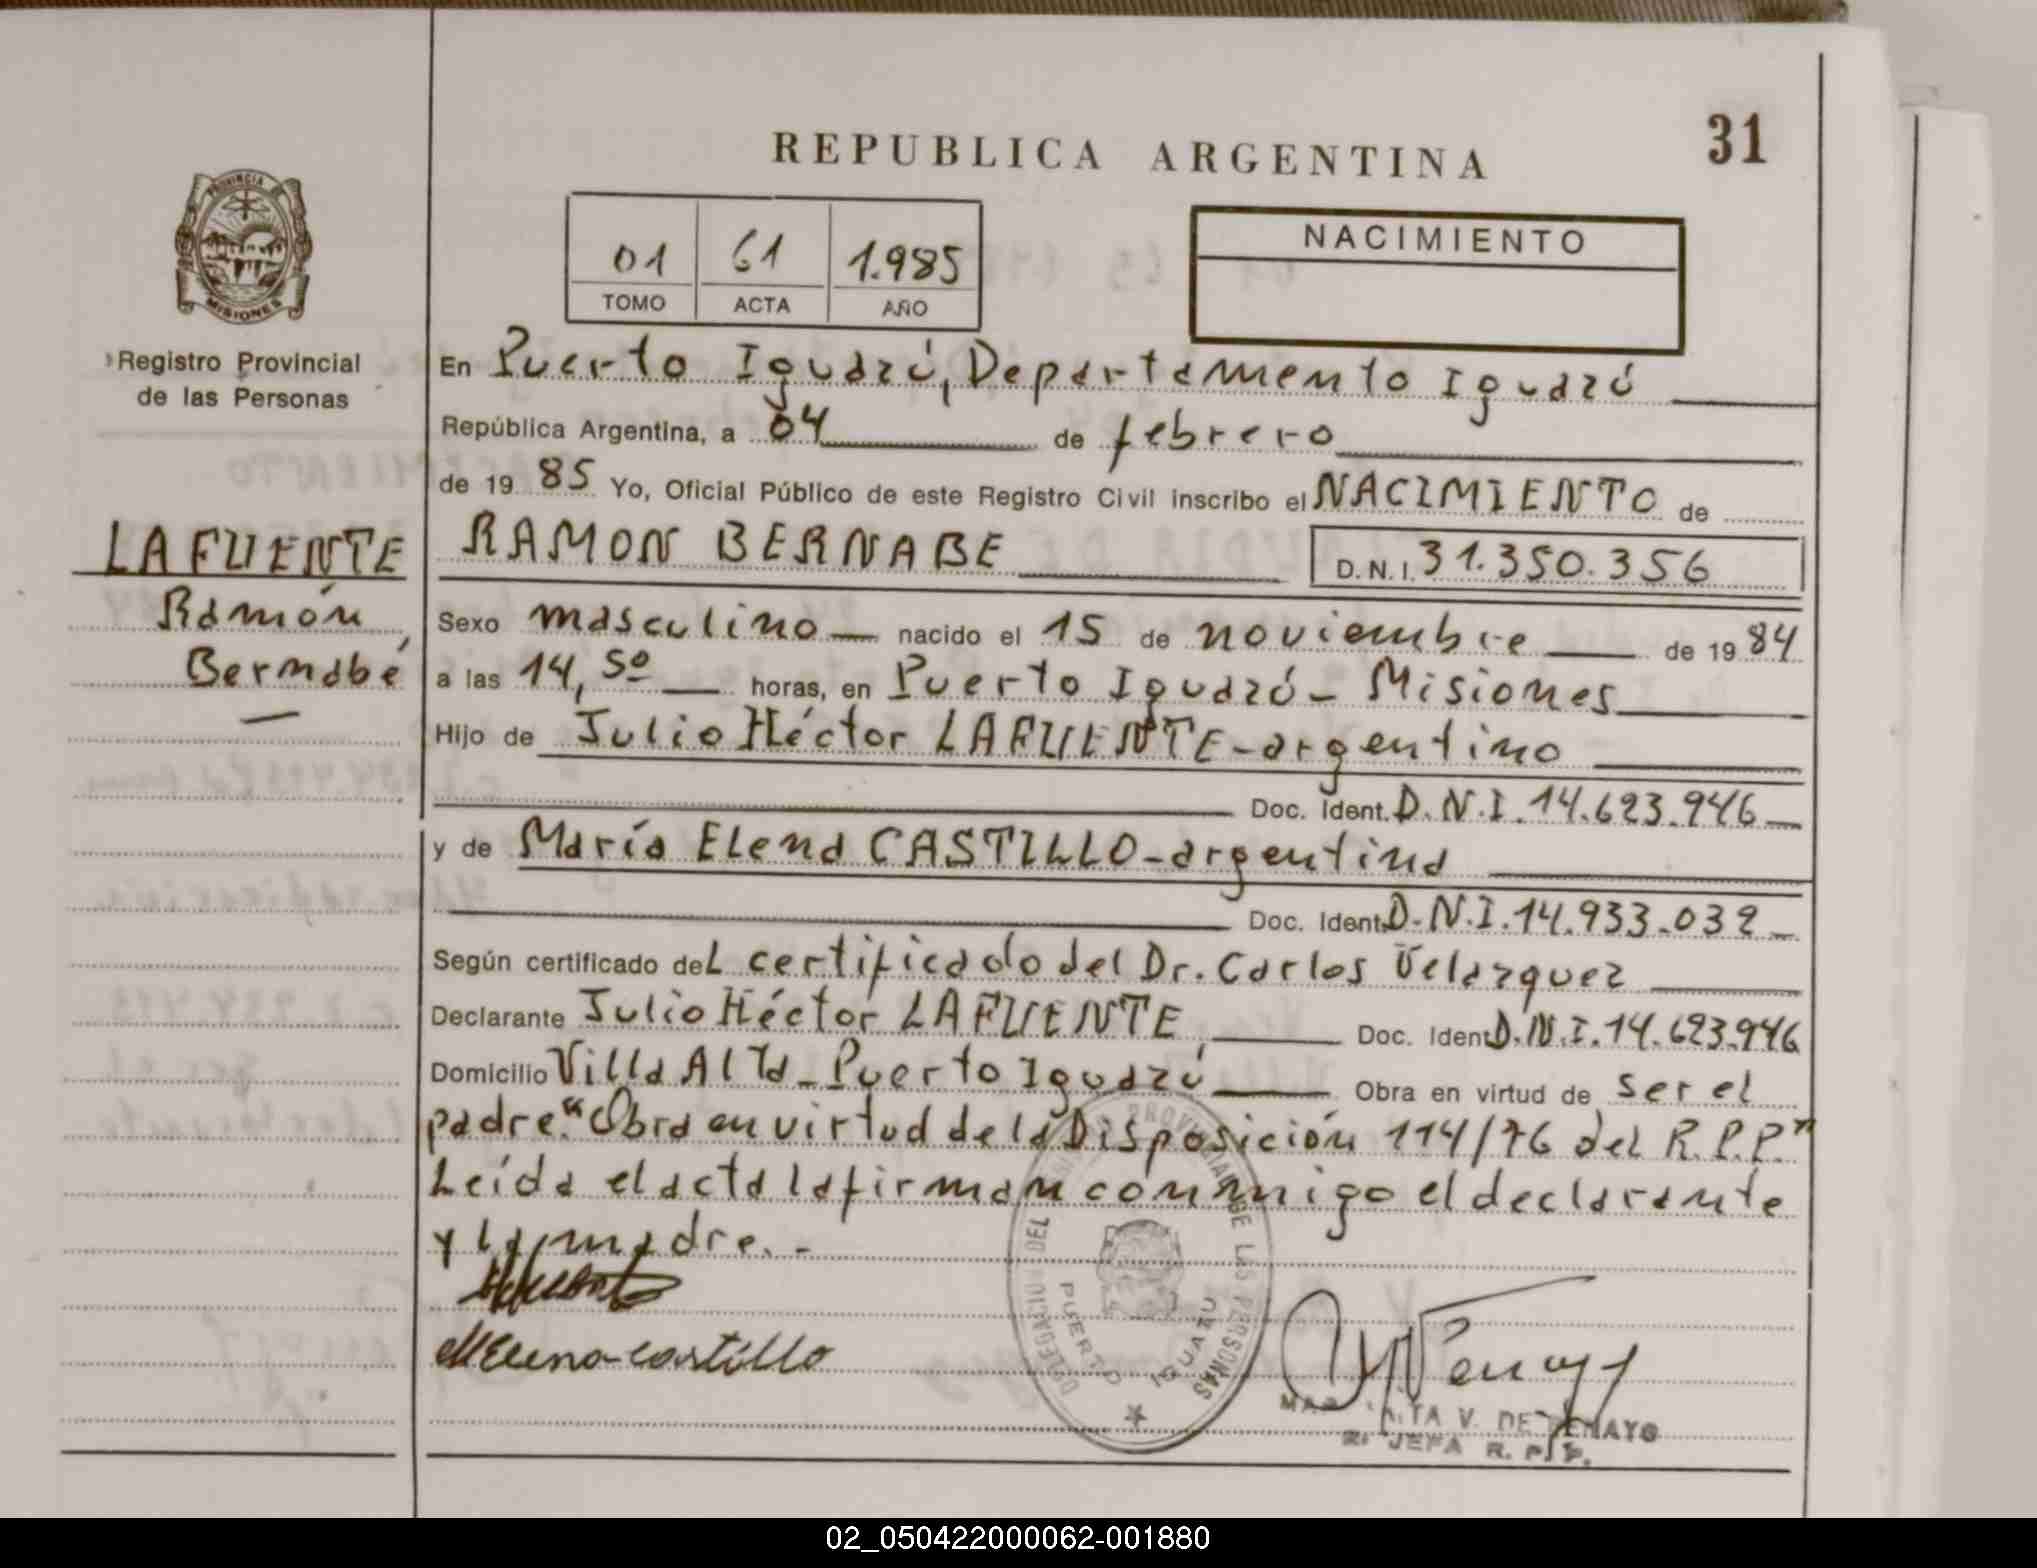 31
REPUBLICA ARGENTINA
PROVINCIA
MISIONES
Registro Provincial
de las Personas
01 61 1.985
TOMO ACTA AÑO
NACIMIENTO
En Puerto Iguazú, Departamento Iguazú
República Argentina, a 04 de febrero
de 1985 Yo, Oficial Público de este Registro Civil inscribo el NACIMIENTO de
LAFUENTE
Ramón
Bernabé
RAMON BERNABE D.N.I. 31.350.356
Sexo masculino nacido el 15 de noviembre de 1984
a las 14,50 horas, en Puerto Iguazú - Misiones
Hijo de Julio Héctor LAFUENTE - argentino
Doc. Ident. D.N.I. 14.623.946
y de María Elena CASTILLO - argentina
Doc. Ident. D.N.I. 14.933.032
Según certificado del certificado del Dr. Carlos Velazquez
Declarante Julio Héctor LAFUENTE Doc. Ident. D.N.I. 14.623.946
Domicilio Villa Alta - Puerto Iguazú Obra en virtud de ser el
padre. "Obra en virtud de la Disposición 114/76 del R.P.P."
Leída el acta la firman conmigo el declarante
y la madre. -
MElena Castillo
DELEGACION DEL REGISTRO PROVINCIAL DE LAS PERSONAS
PUERTO IGUAZU
V. DE PENAYO
JEFA R. P. P.
02_050422000062-001880